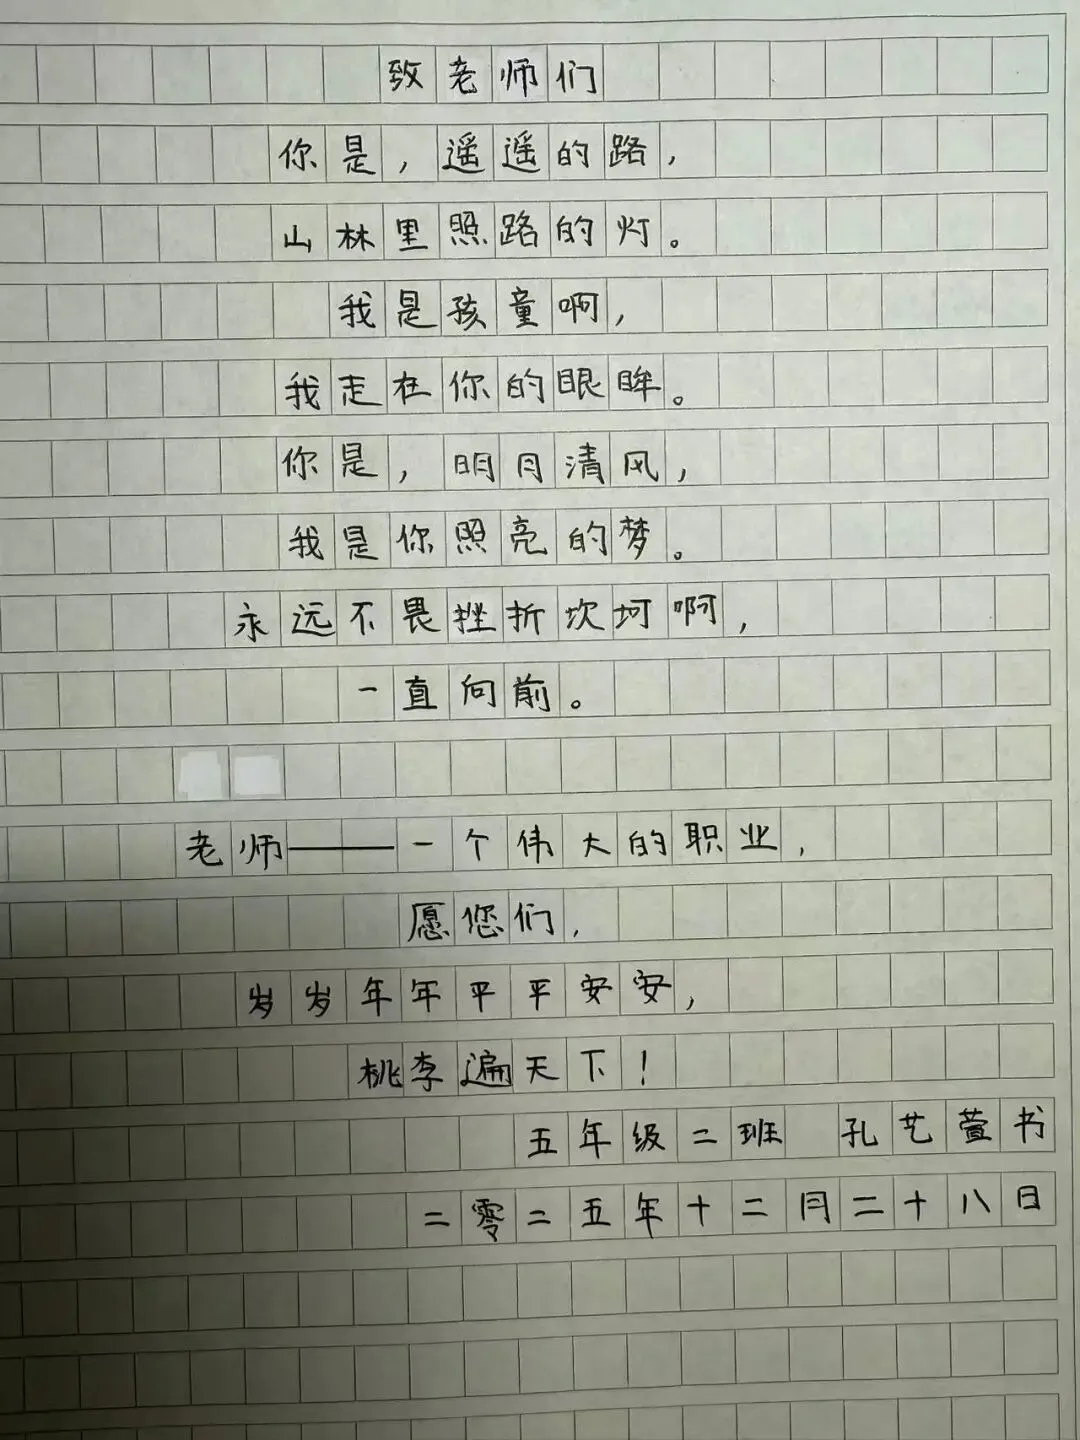 致老师们
你是，遥遥的路，
山林里照路的灯。
我是孩童啊，
我走在你的眼眸。
你是，明月清风，
我是你照亮的梦。
永远不畏挫折坎坷啊，
一直向前。
老师——一个伟大的职业，
愿您们，
岁岁年年平平安安，
桃李遍天下！
五年级二班 孔艺萱书
二零二五年十二月二十八日